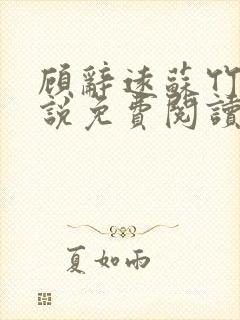 顾辭遠蘇竹
說免費閱讀
夏如雨